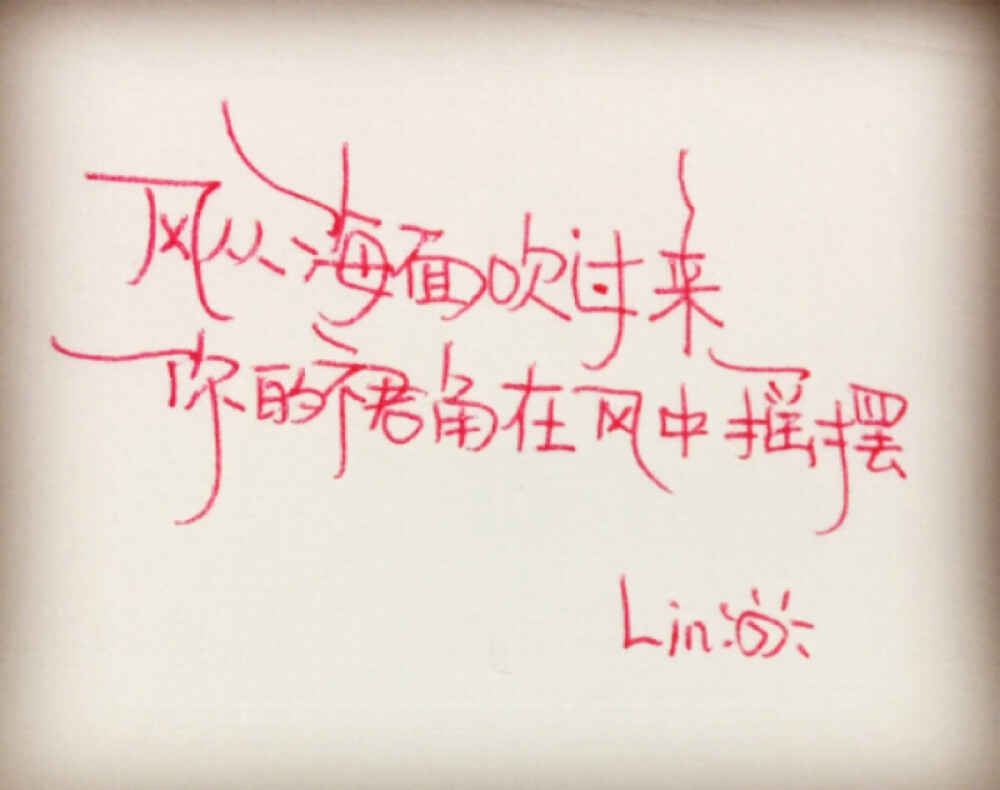 风从海面吹过来
你的裙角在风中摇摆
Lin